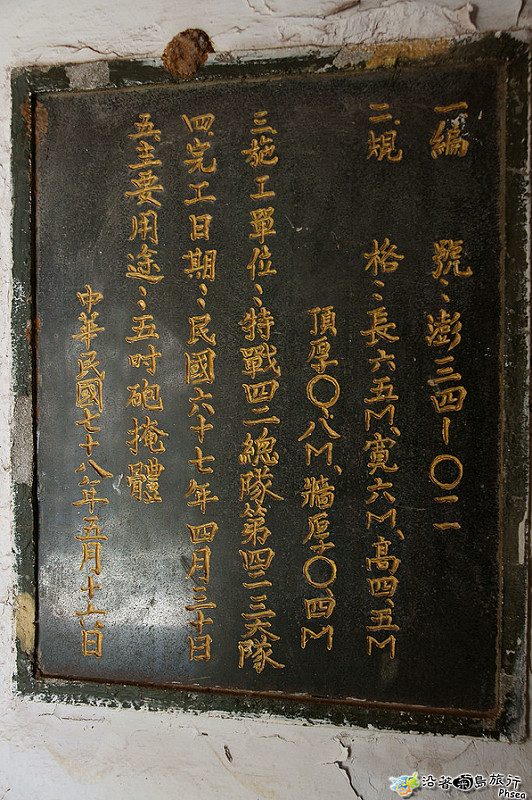 一編　　號：澎三四-〇一一
二規　　格：長六五M、寬六M、高四.五M
頂厚〇.八M、牆厚〇.四M
三施工單位：特戰四二總隊第四二三大隊
四完工日期：民國六十七年四月三十日
五主要用途：五吋砲掩體
中華民國七十八年五月十六日
沿著菊島旅行
Phsea